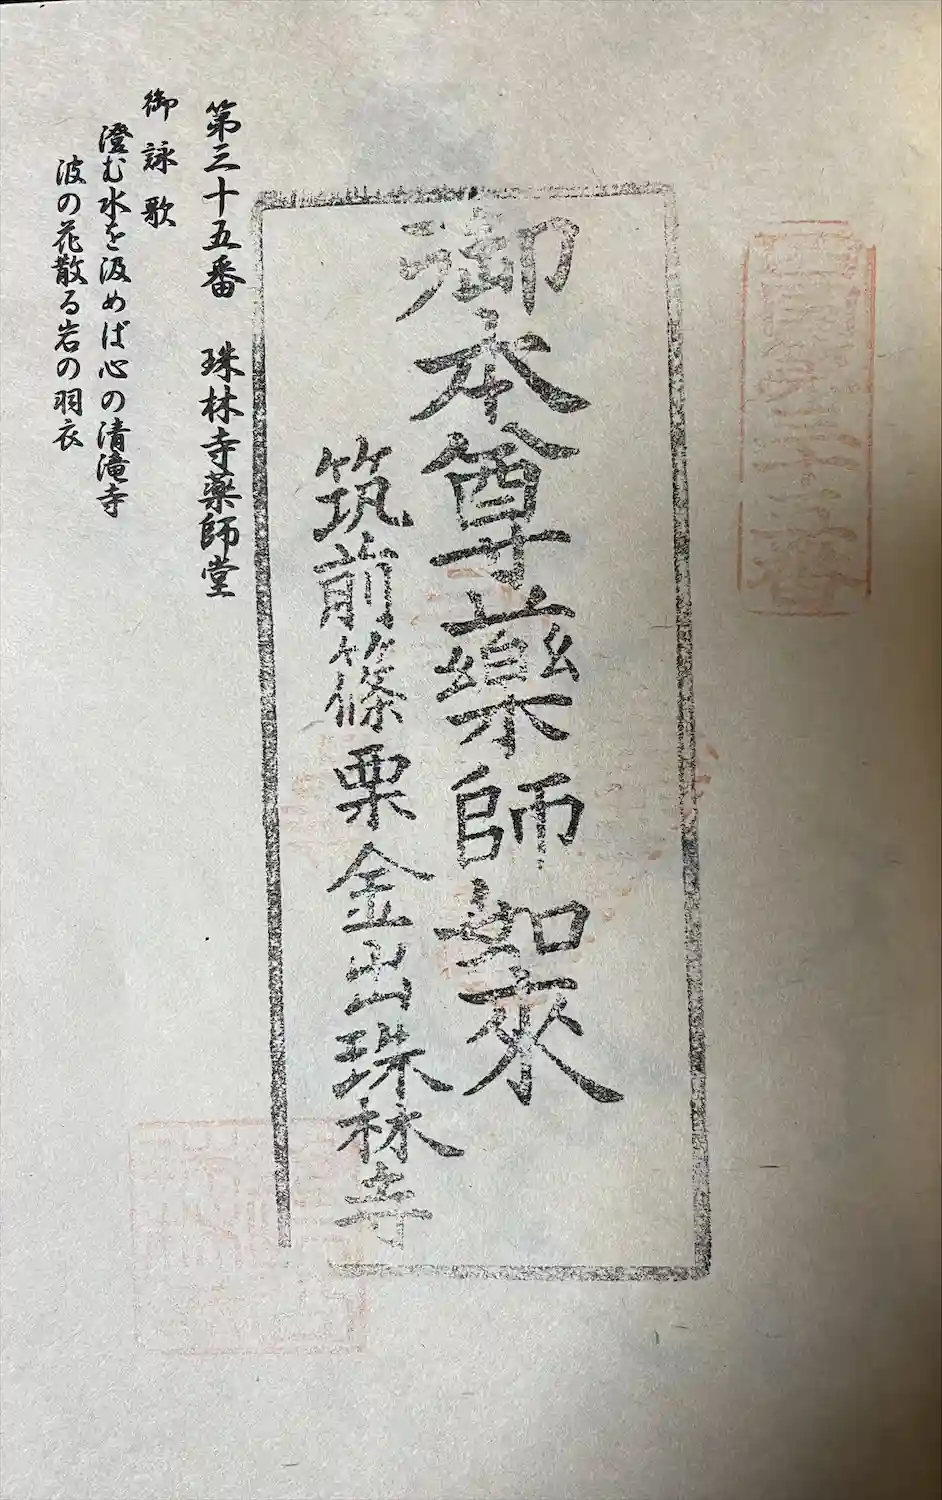 御本尊藥師如來
筑前篠栗金出珠林寺
第三十五番 珠林寺薬師堂
御詠歌
澄む水を汲めば心の清滝寺
波の花散る岩の羽衣